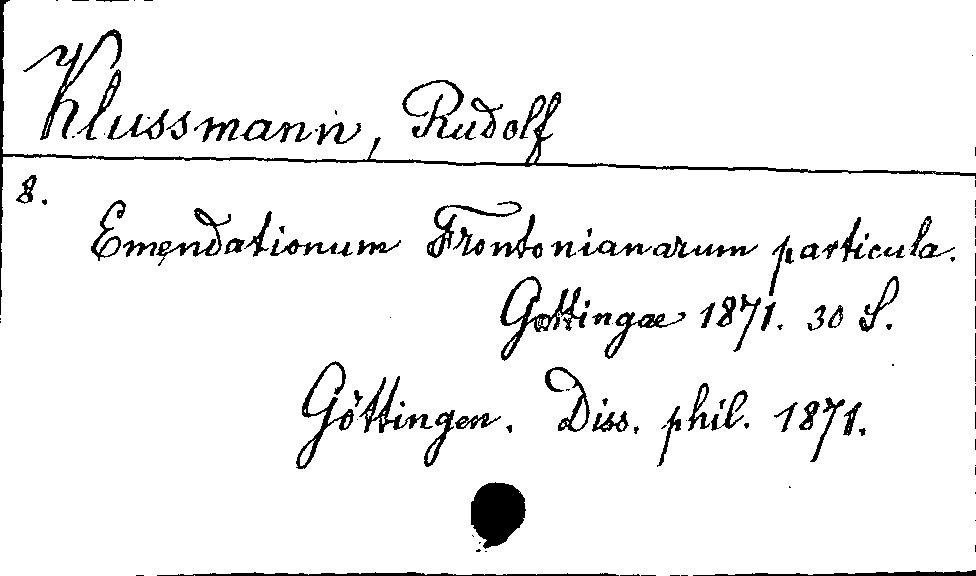 Klussmann, Rudolf
8.
Emendationum Frontonianarum particula.
Gottingae 1871. 30 S.
Göttingen. Diss. phil. 1871.